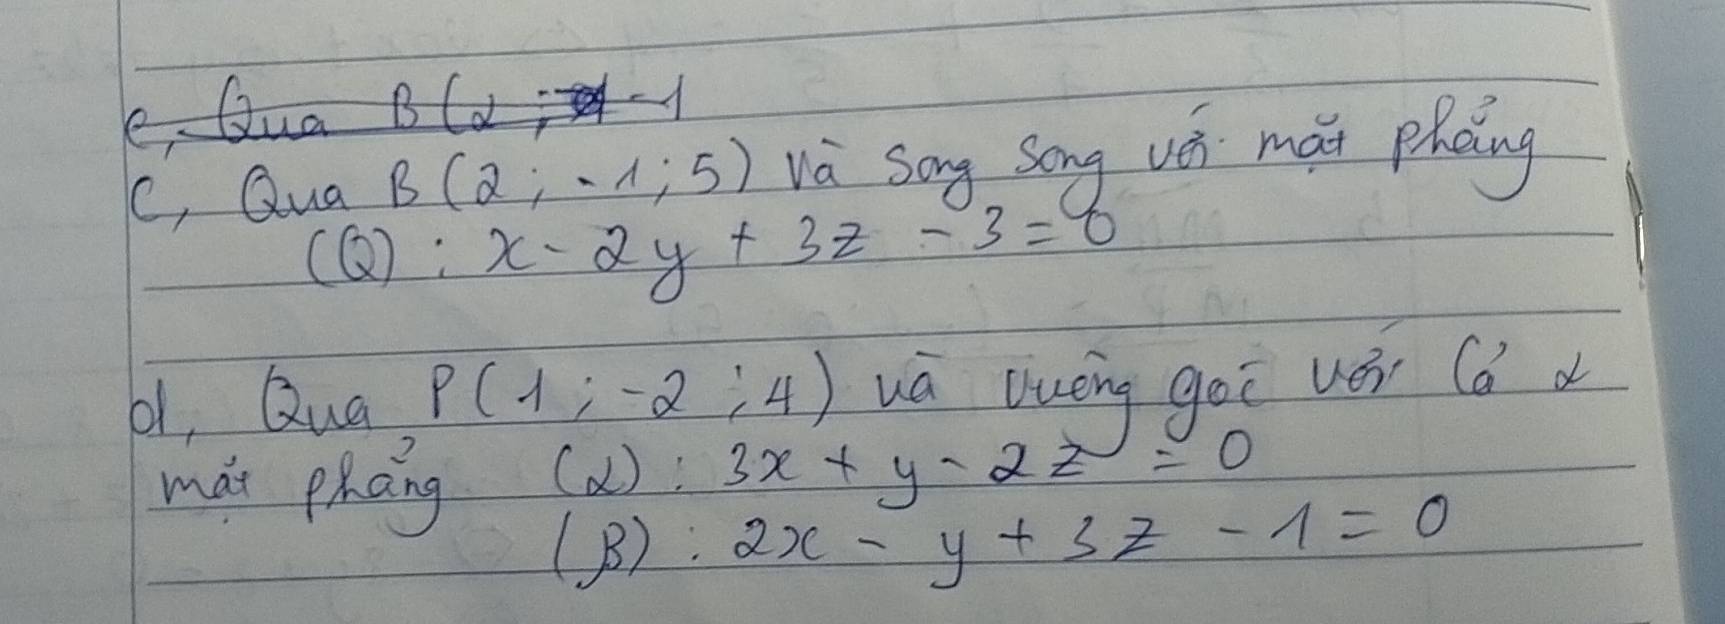 c, Qua B(2; -1
c, Qua B(2; -1; 5) và song song với mặt phẳng
(Q): x - 2y + 3z - 3 = 0
d, Qua P(1; -2; 4) và vuông góc với cả 2
mặt phẳng (α): 3x + y - 2z = 0
(β): 2x - y + 3z - 1 = 0